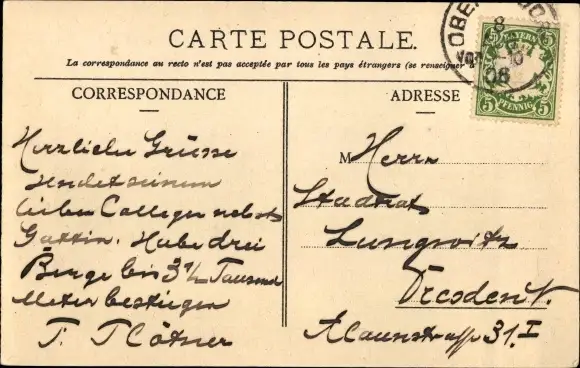 CARTE POSTALE.
La correspondance au recto n'est pas acceptée par tous les pays étrangers (se renseigner
CORRESPONDANCE
ADRESSE
Herzliche Grüsse
sendet seinem
lieben Collegen nebst
Gattin. Habe drei
Berge bis 3½ Tausend
Meter bestiegen
M Herrn
Stadtrat
Lungwitz
Dresden N.
Alaunstrasse 31. I
BAYERN
5 5
PFENNIG
08